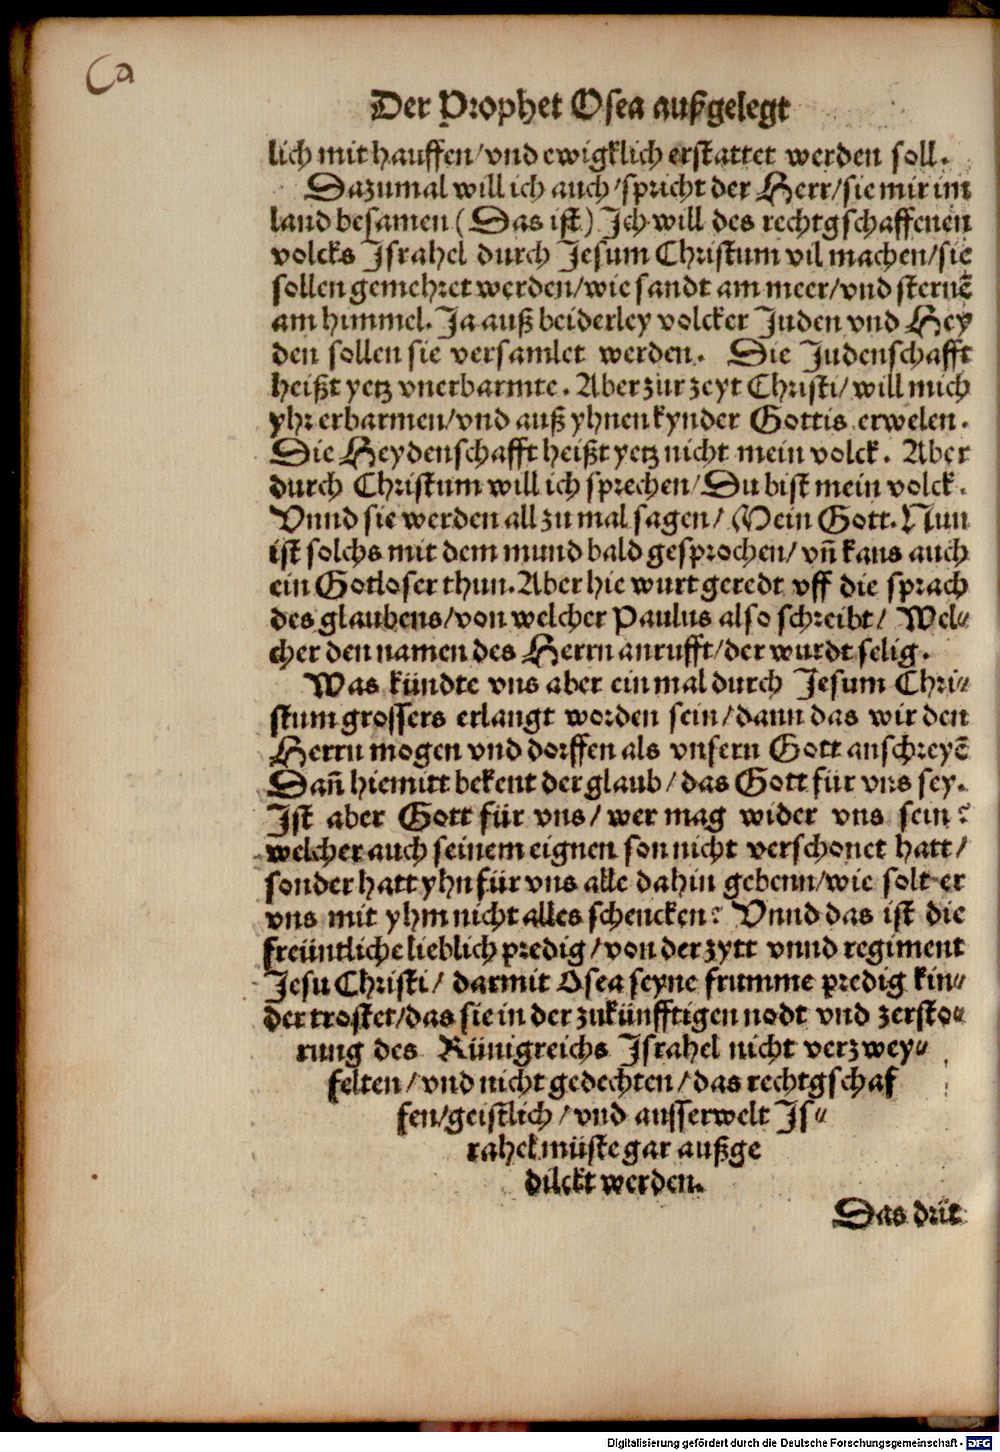 Der Prophet Osea außgelegt
lich mit hauffen/vnd ewigklich erstattet werden soll.
Dazumal will ich auch/spricht der Herr/sie mir im
land besamen (Das ist) Ich will des rechtgschaffenen
volcks Israhel durch Jesum Christum vil machen/sie
sollen gemehret werden/wie sandt am meer/vnd sternē
am himmel. Ja auß beiderley volcker Juden vnd Hey
den sollen sie versamlet werden. Die Judenschafft
heißt yetz vnerbarmte. Aber zur zeyt Christi/will mich
yhr erbarmen/vnd auß yhnen kynder Gottis erwelen.
Die Heydenschafft heißt yetz nicht mein volck. Aber
durch Christum will ich sprechen/Du bist mein volck.
Vnnd sie werden all zu mal sagen/ Mein Gott. Nun
ist solchs mit dem mund bald gesprochen/vn̄ kans auch
ein Gotloser thun. Aber hie wurt geredt vff die sprach
des glaubens/von welcher Paulus also schreibt/ Wel⸗
cher den namen des Herrn anrufft/der wurdt selig.
Was kündte vns aber ein mal durch Jesum Chri⸗
stum grossers erlangt worden sein/dann das wir den
Herrn mogen vnd dorffen als vnsern Gott anschreyē
Dan̄ hiemitt bekent der glaub/das Gott für vns sey.
Ist aber Gott für vns/wer mag wider vns sein?
welcher auch seinem eignen son nicht verschonet hatt/
sonder hatt yhn für vns alle dahin gebenn/wie solt er
vns mit yhm nicht alles schencken? Vnnd das ist die
freüntliche lieblich predig/von der zytt vnnd regiment
Jesu Christi/ darmit Osea seyne frumme predig kin⸗
der trostet/das sie in der zukünfftigen nodt vnd zersto⸗
rung des Künigreichs Israhel nicht verzwey⸗
felten/vnd nicht gedechten/das rechtgschaf
fen/geistlich/vnd ausserwelt Is⸗
rahel müste gar außge
dilckt werden.
Das drit
Digitalisierung gefördert durch die Deutsche Forschungsgemeinschaft - DFG